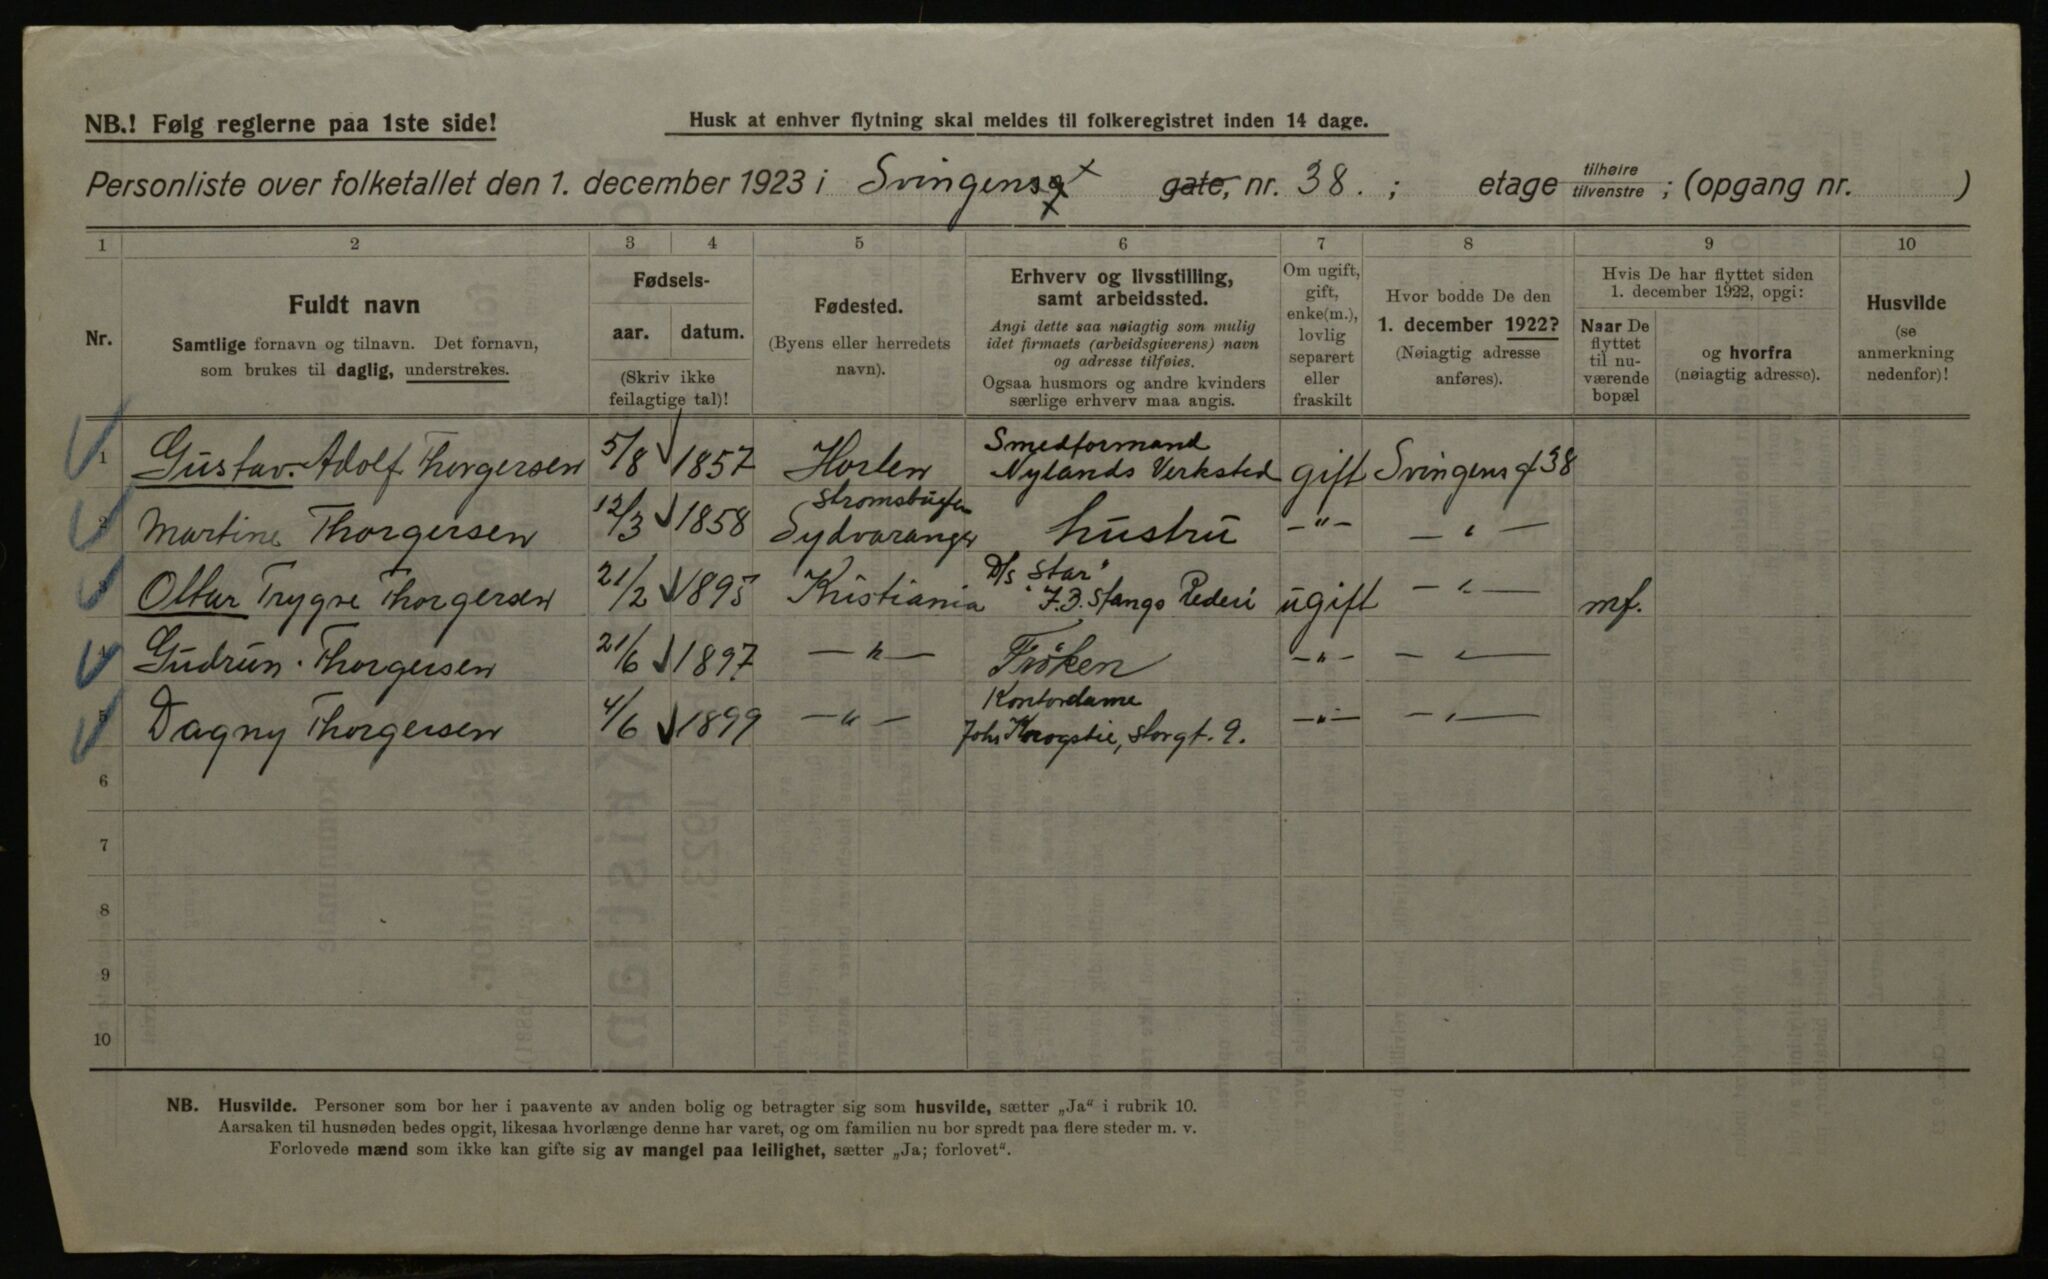 NB.! Følg reglerne paa 1ste side!
Husk at enhver flytning skal meldes til folkeregistret inden 14 dage.
Personliste over folketallet den 1. december 1923 i Svingensg gate, nr. 38. ; etage tilhøire tilvenstre ; (opgang nr. )
1 2 3 4 5 6 7 8 9 10
Nr.
Fuldt navn
Samtlige fornavn og tilnavn. Det fornavn,
som brukes til daglig, understrekes.
Fødsels-
aar. datum.
(Skriv ikke
feilagtige tal)!
Fødested.
(Byens eller herredets
navn).
Erhverv og livsstilling,
samt arbeidssted.
Angi dette saa nøiagtig som mulig
idet firmaets (arbeidsgiverens) navn
og adresse tilføies.
Ogsaa husmors og andre kvinders
særlige erhverv maa angis.
Om ugift,
gift,
enke(m.),
lovlig
separert
eller
fraskilt
Hvor bodde De den
1. december 1922?
(Nøiagtig adresse
anføres).
Hvis De har flyttet siden
1. december 1922, opgi:
Naar De
flyttet
til nu-
værende
bopæl
og hvorfra
(nøiagtig adresse).
Husvilde
(se
anmerkning
nedenfor)!
Smedformand
1 Gustav Adolf Thorgersen 5/8 1857 Horten Nylands Verksted gift Svingensg 38
2 Martine Thorgersen 12/3 1858 Sydvaranger hustru -"- - " -
D/s "Star"
3 Ottar Trygve Thorgersen 21/2 1895 Kristiania J.B. Stangs Rederi ugift - " - mf.
4 Gudrun Thorgersen 21/6 1897 - " - Frøken - " - - " -
Kontordame
5 Dagny Thorgersen 4/6 1899 - " - Johs Krogstie, Storgt. 9. - " - - " -
6
7
8
9
10
NB. Husvilde. Personer som bor her i paavente av anden bolig og betragter sig som husvilde, sætter „Ja“ i rubrik 10.
Aarsaken til husnøden bedes opgit, likesaa hvorlænge denne har varet, og om familien nu bor spredt paa flere steder m. v.
Forlovede mænd som ikke kan gifte sig av mangel paa leilighet, sætter „Ja; forlovet“.